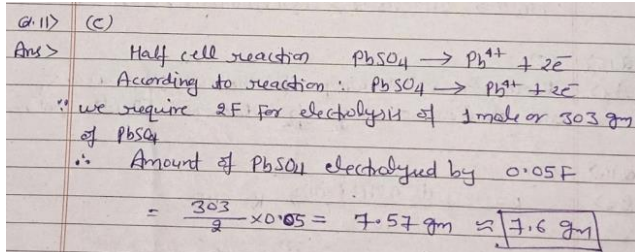 Q.11> (C)
Ans> Half cell reaction PbSO4 → Pb⁴⁺ + 2e⁻
According to reaction : PbSO4 → Pb⁴⁺ + 2e⁻
∵ we require 2F for electrolysis of 1 mole or 303 gm
of PbSO4
∴ Amount of PbSO4 electrolyed by 0.05F
= 303/2 × 0.05 = 7.57 gm ≈ 7.6 gm